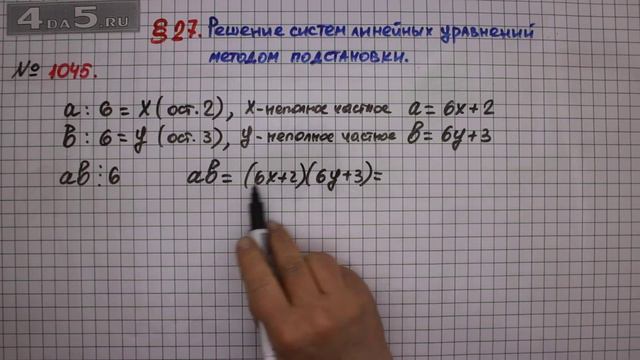 4DA5.RU
§27. Решение систем линейных уравнений
методом подстановки.
№ 1045.
a : 6 = x (ост. 2), x - неполное частное a = 6x + 2
в : 6 = y (ост. 3), y - неполное частное в = 6y + 3
aв ⋮ 6 aв = (6x+2)(6y+3) =